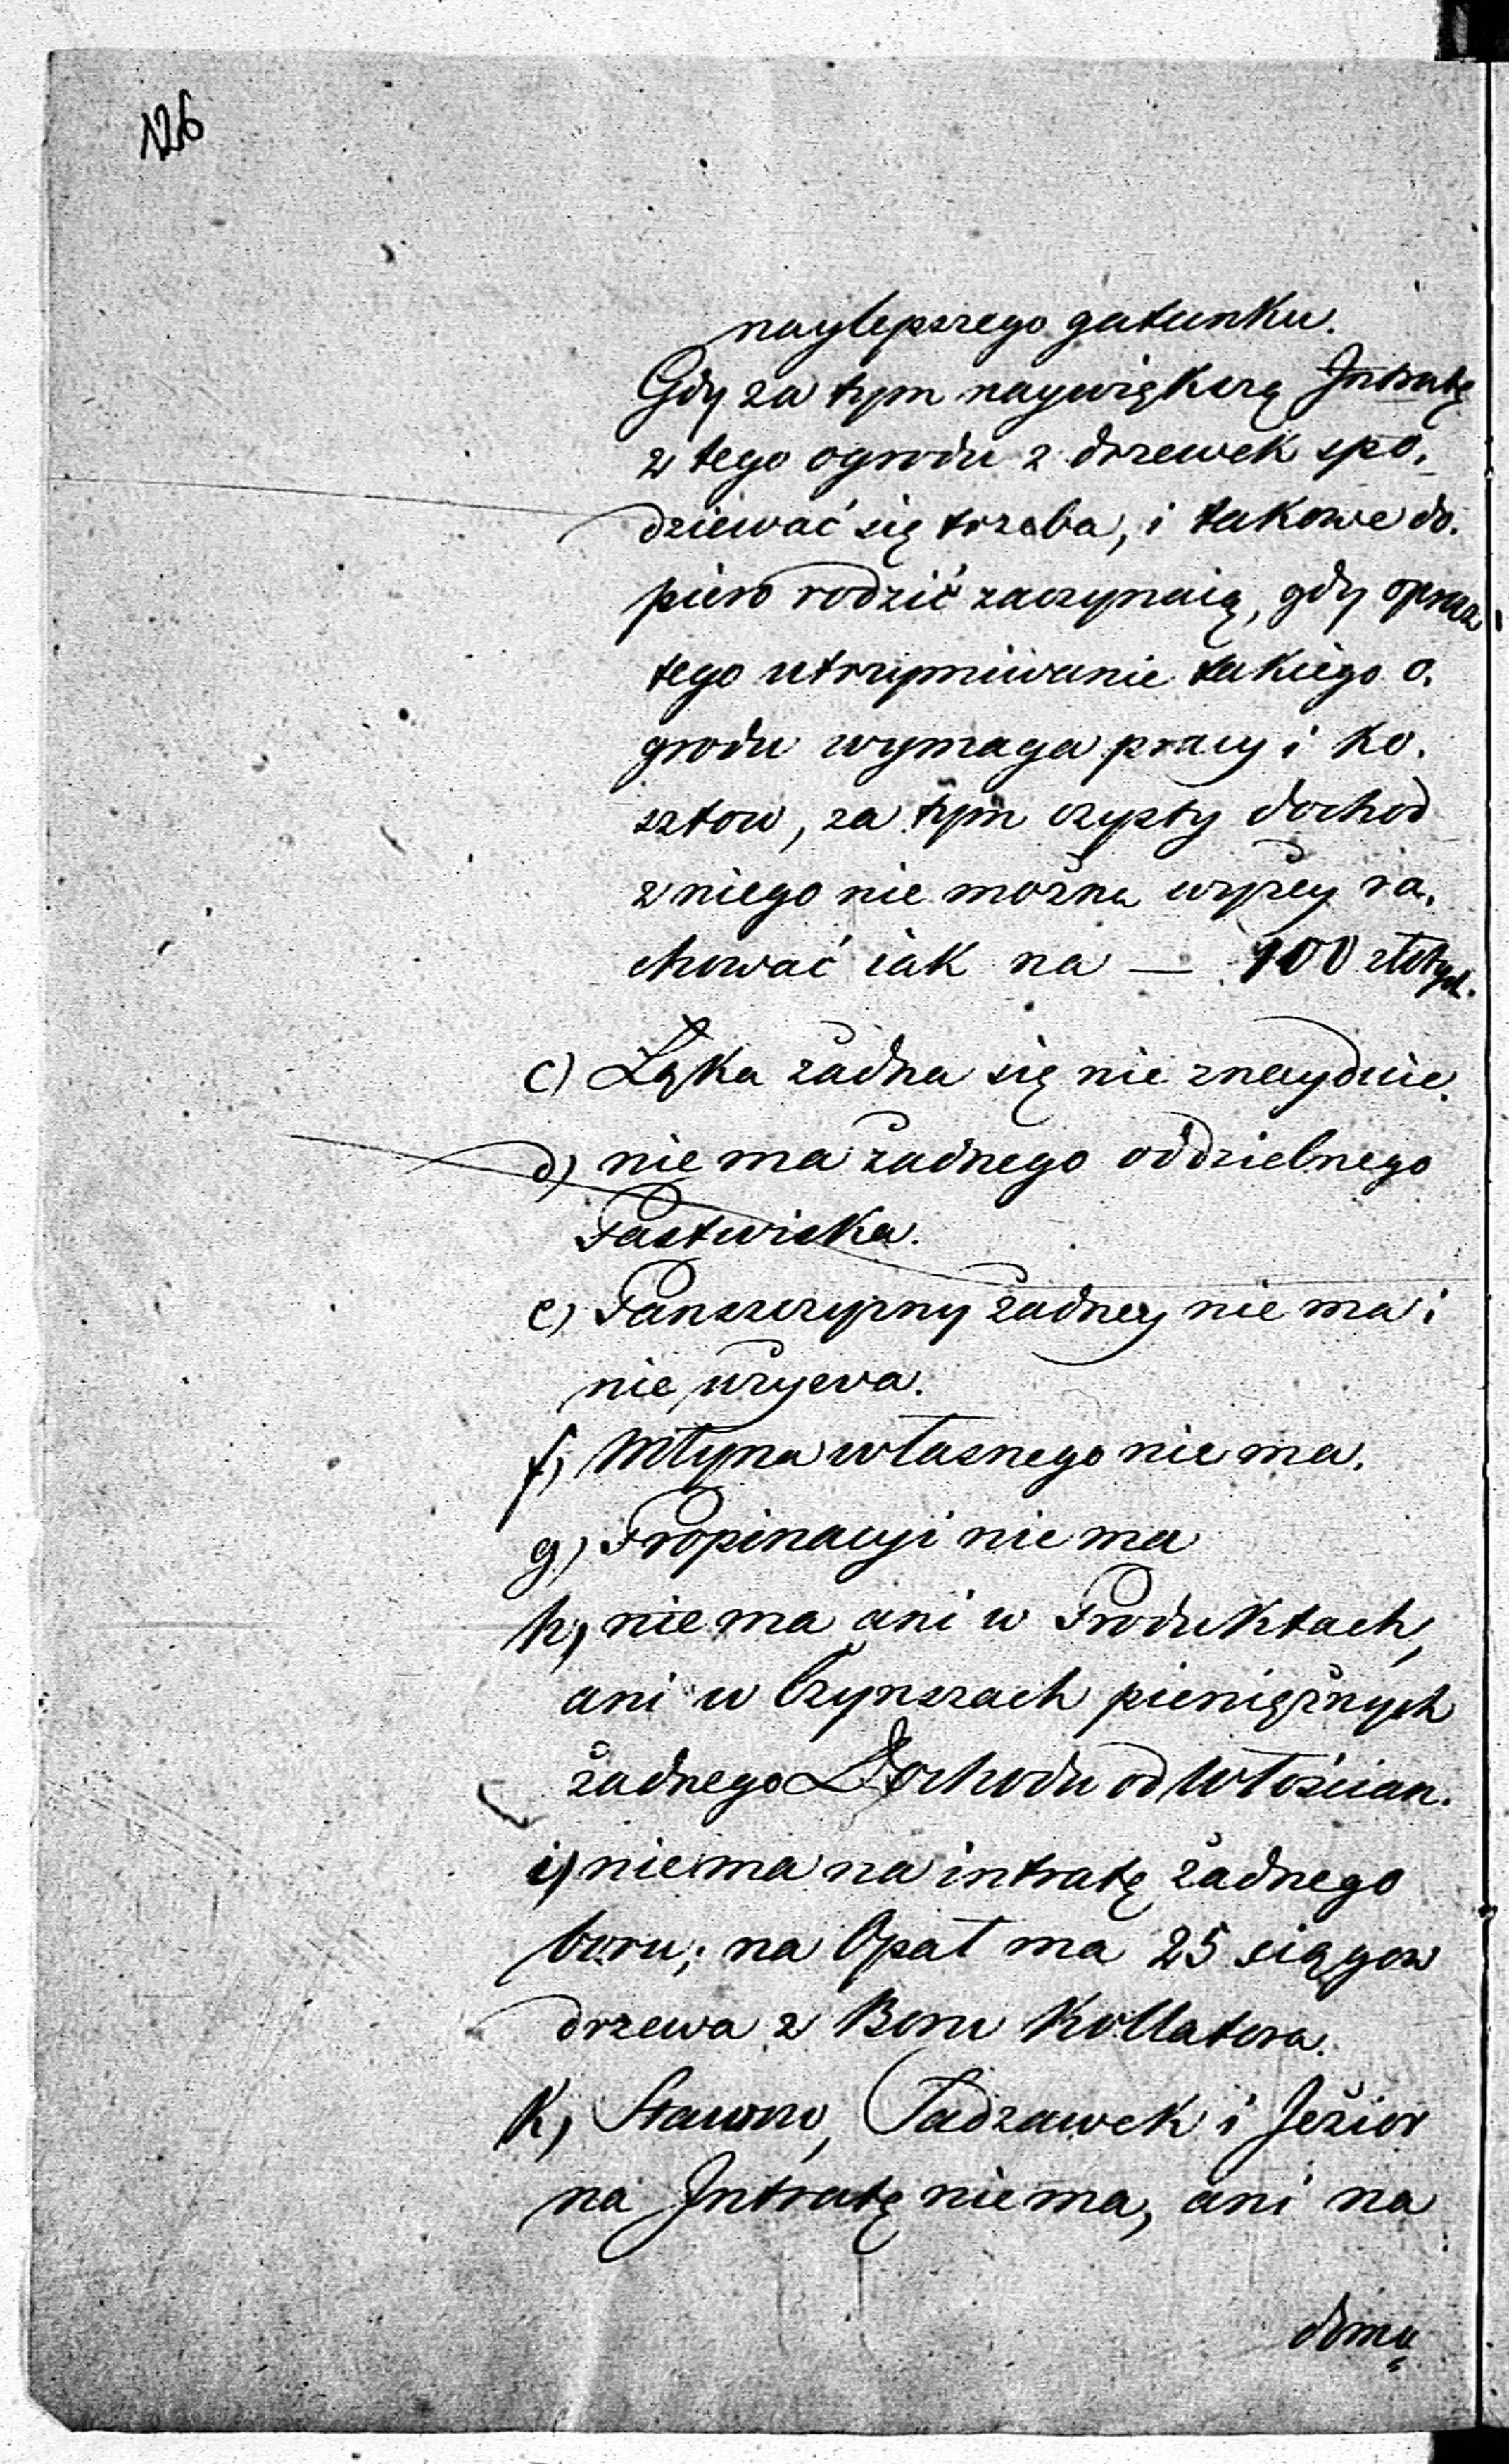 126
naylepszego gatunku.
Gdy za tym naywiększą Jntratę
z tego ogrodu z drzewek spo-
dziewać się trzeba, i takowe do-
piero rodzić zaczynaią, gdy oprocz
tego utrzymiwanie takiego o-
grodu wymaga pracy i ko-
sztow, za tym czysty dochod
z niego nie można wyżey ra-
chować iak na — 100 złotych.
c) Łąka żadna się nie znayduie.
d) nie ma żadnego oddzielnego
Pastwiska.
e) Panszczyzny żadney nie ma i
nie używa.
f) Młyna własnego nie ma.
g) Propinacyi nie ma
h) nie ma ani w Produktach,
ani w Czynszach pieniężnych
żadnego Dochodu od Włościan.
i) nie ma na intratę żadnego
boru; na Opał ma 25 siągow
drzewa z Boru Kollatora.
k) Stawow, Sadzawek i Jezior
na Jntratę nie ma, ani na
domu